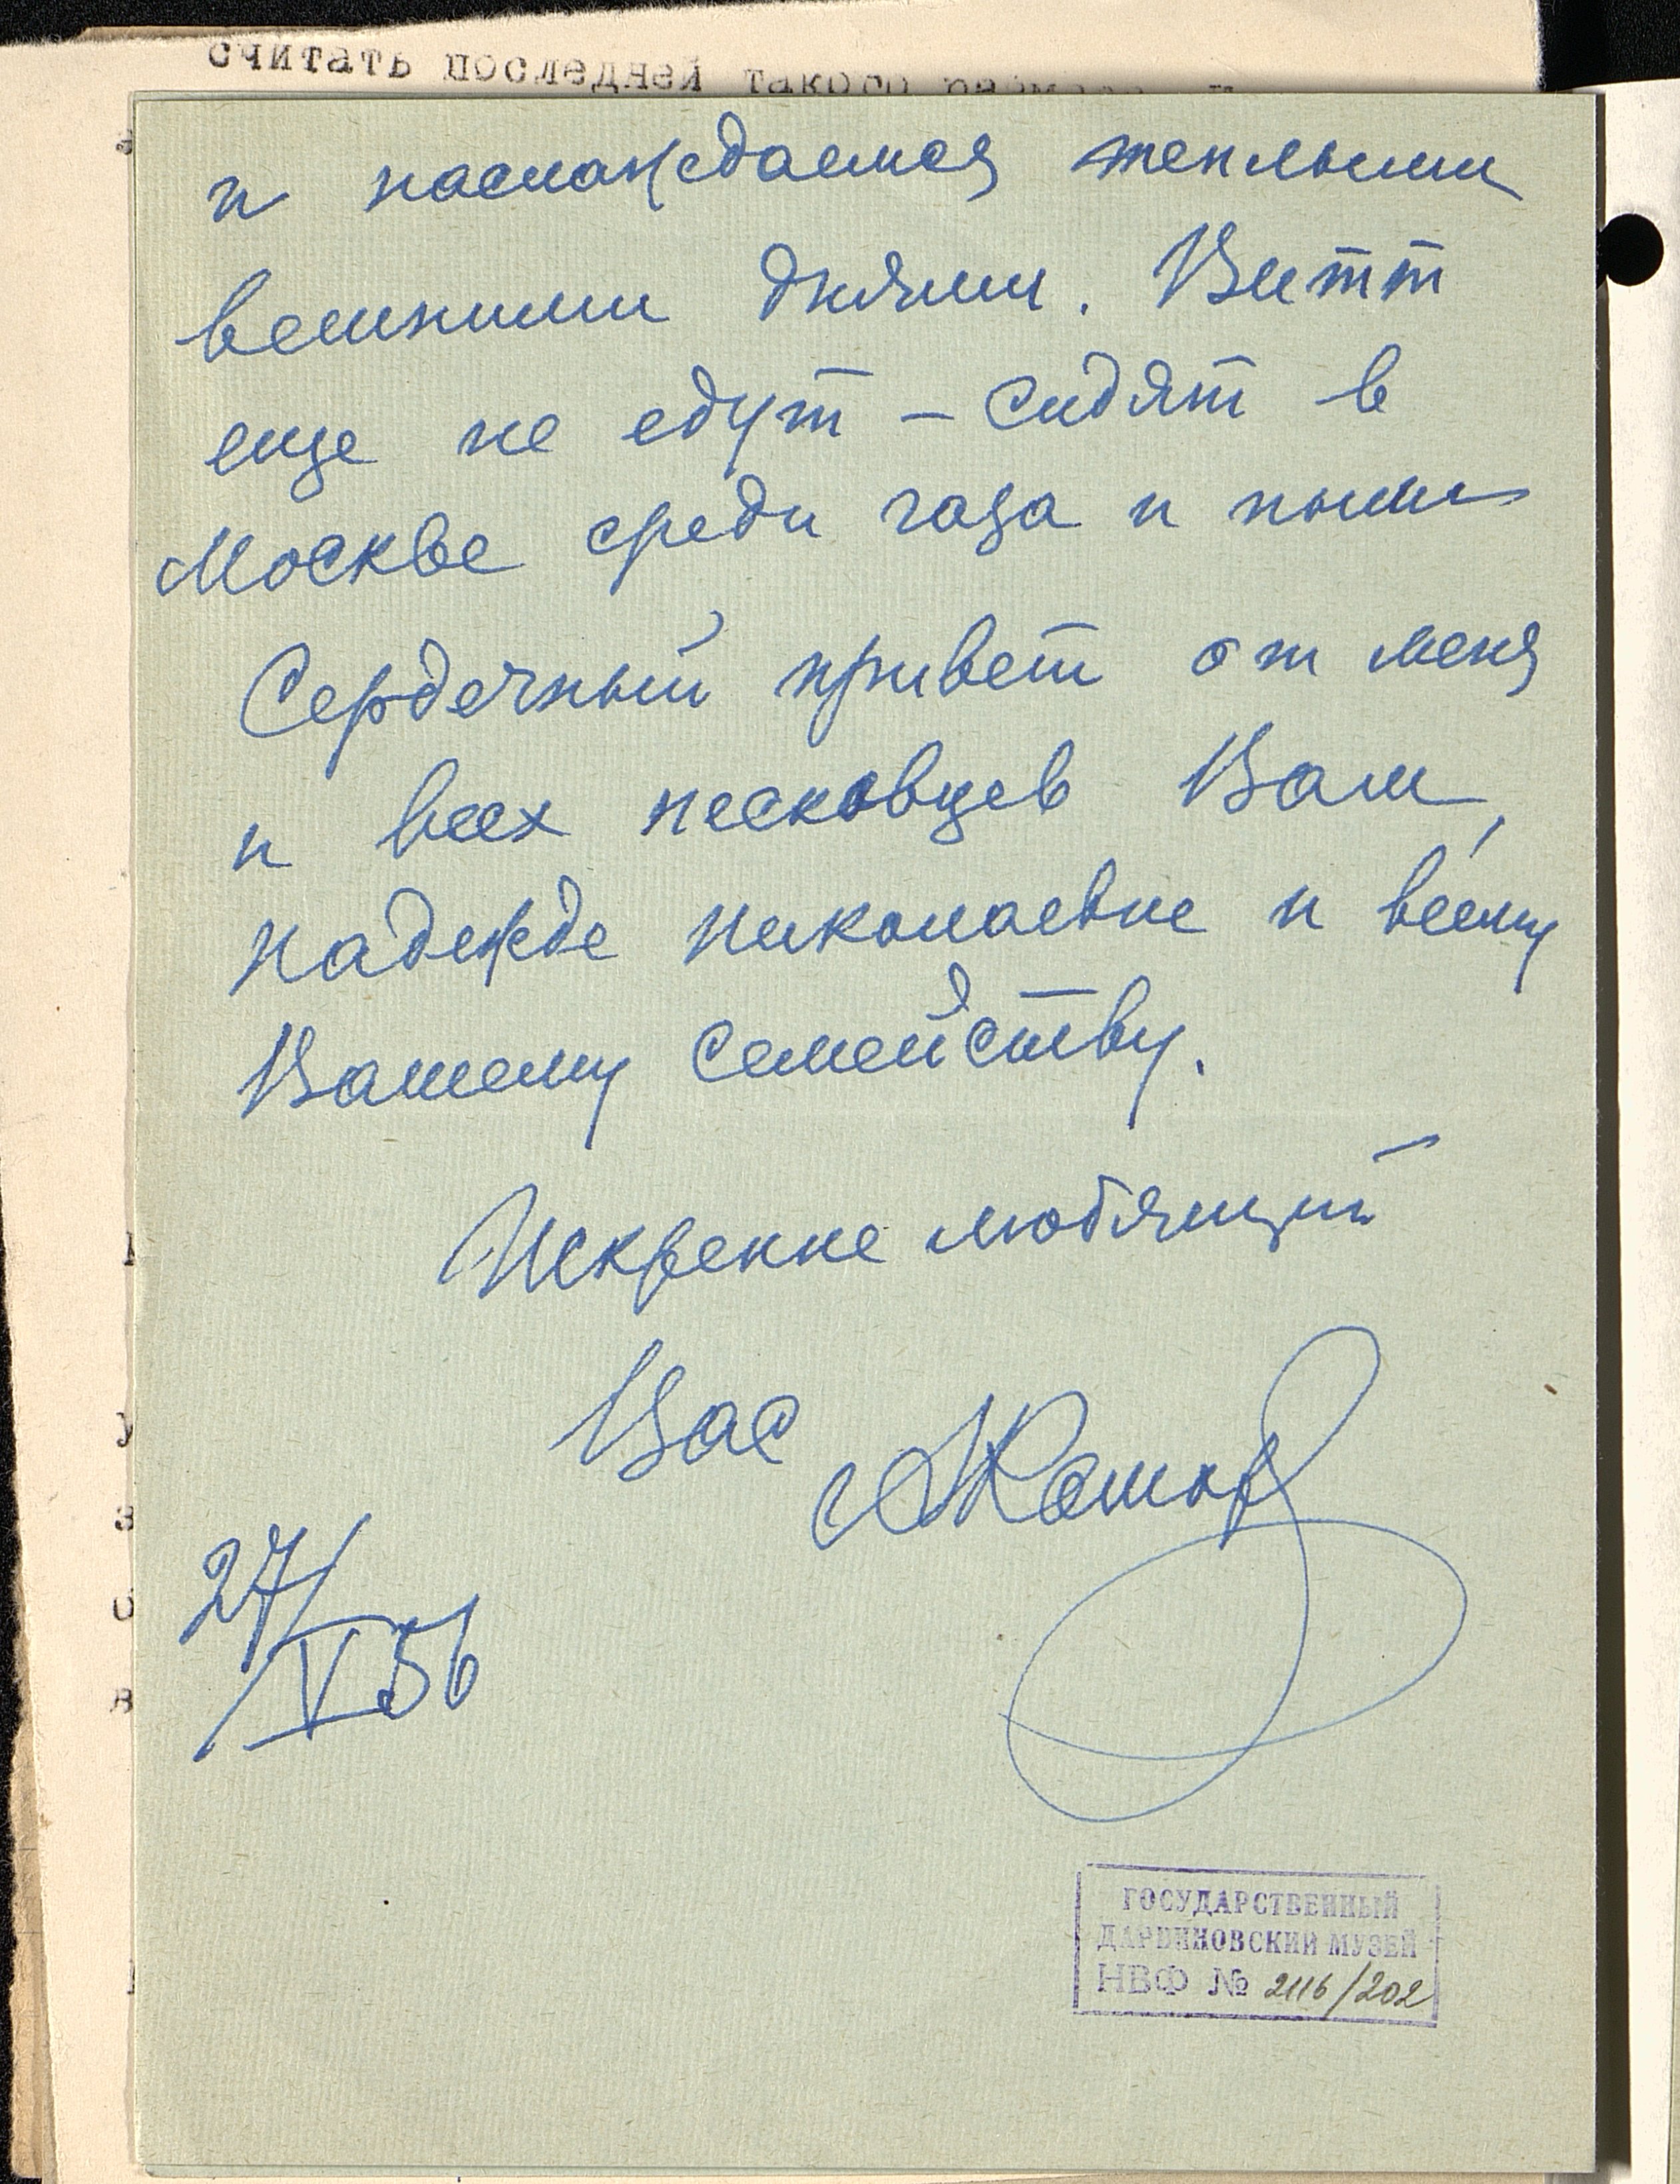 считать последней такого
и наслаждаемся теплыми
вешними днями. Витт
еще не едут – сидят в
Москве среди газа и пыли
Сердечный привет от меня
и всех песковцев Вам,
Надежде Николаевне и всему
Вашему семейству.
Искренне любящий
Вас
27/V 56
ГОСУДАРСТВЕННЫЙ
ДАРВИНОВСКИЙ МУЗЕЙ
НВФ № 2116/202